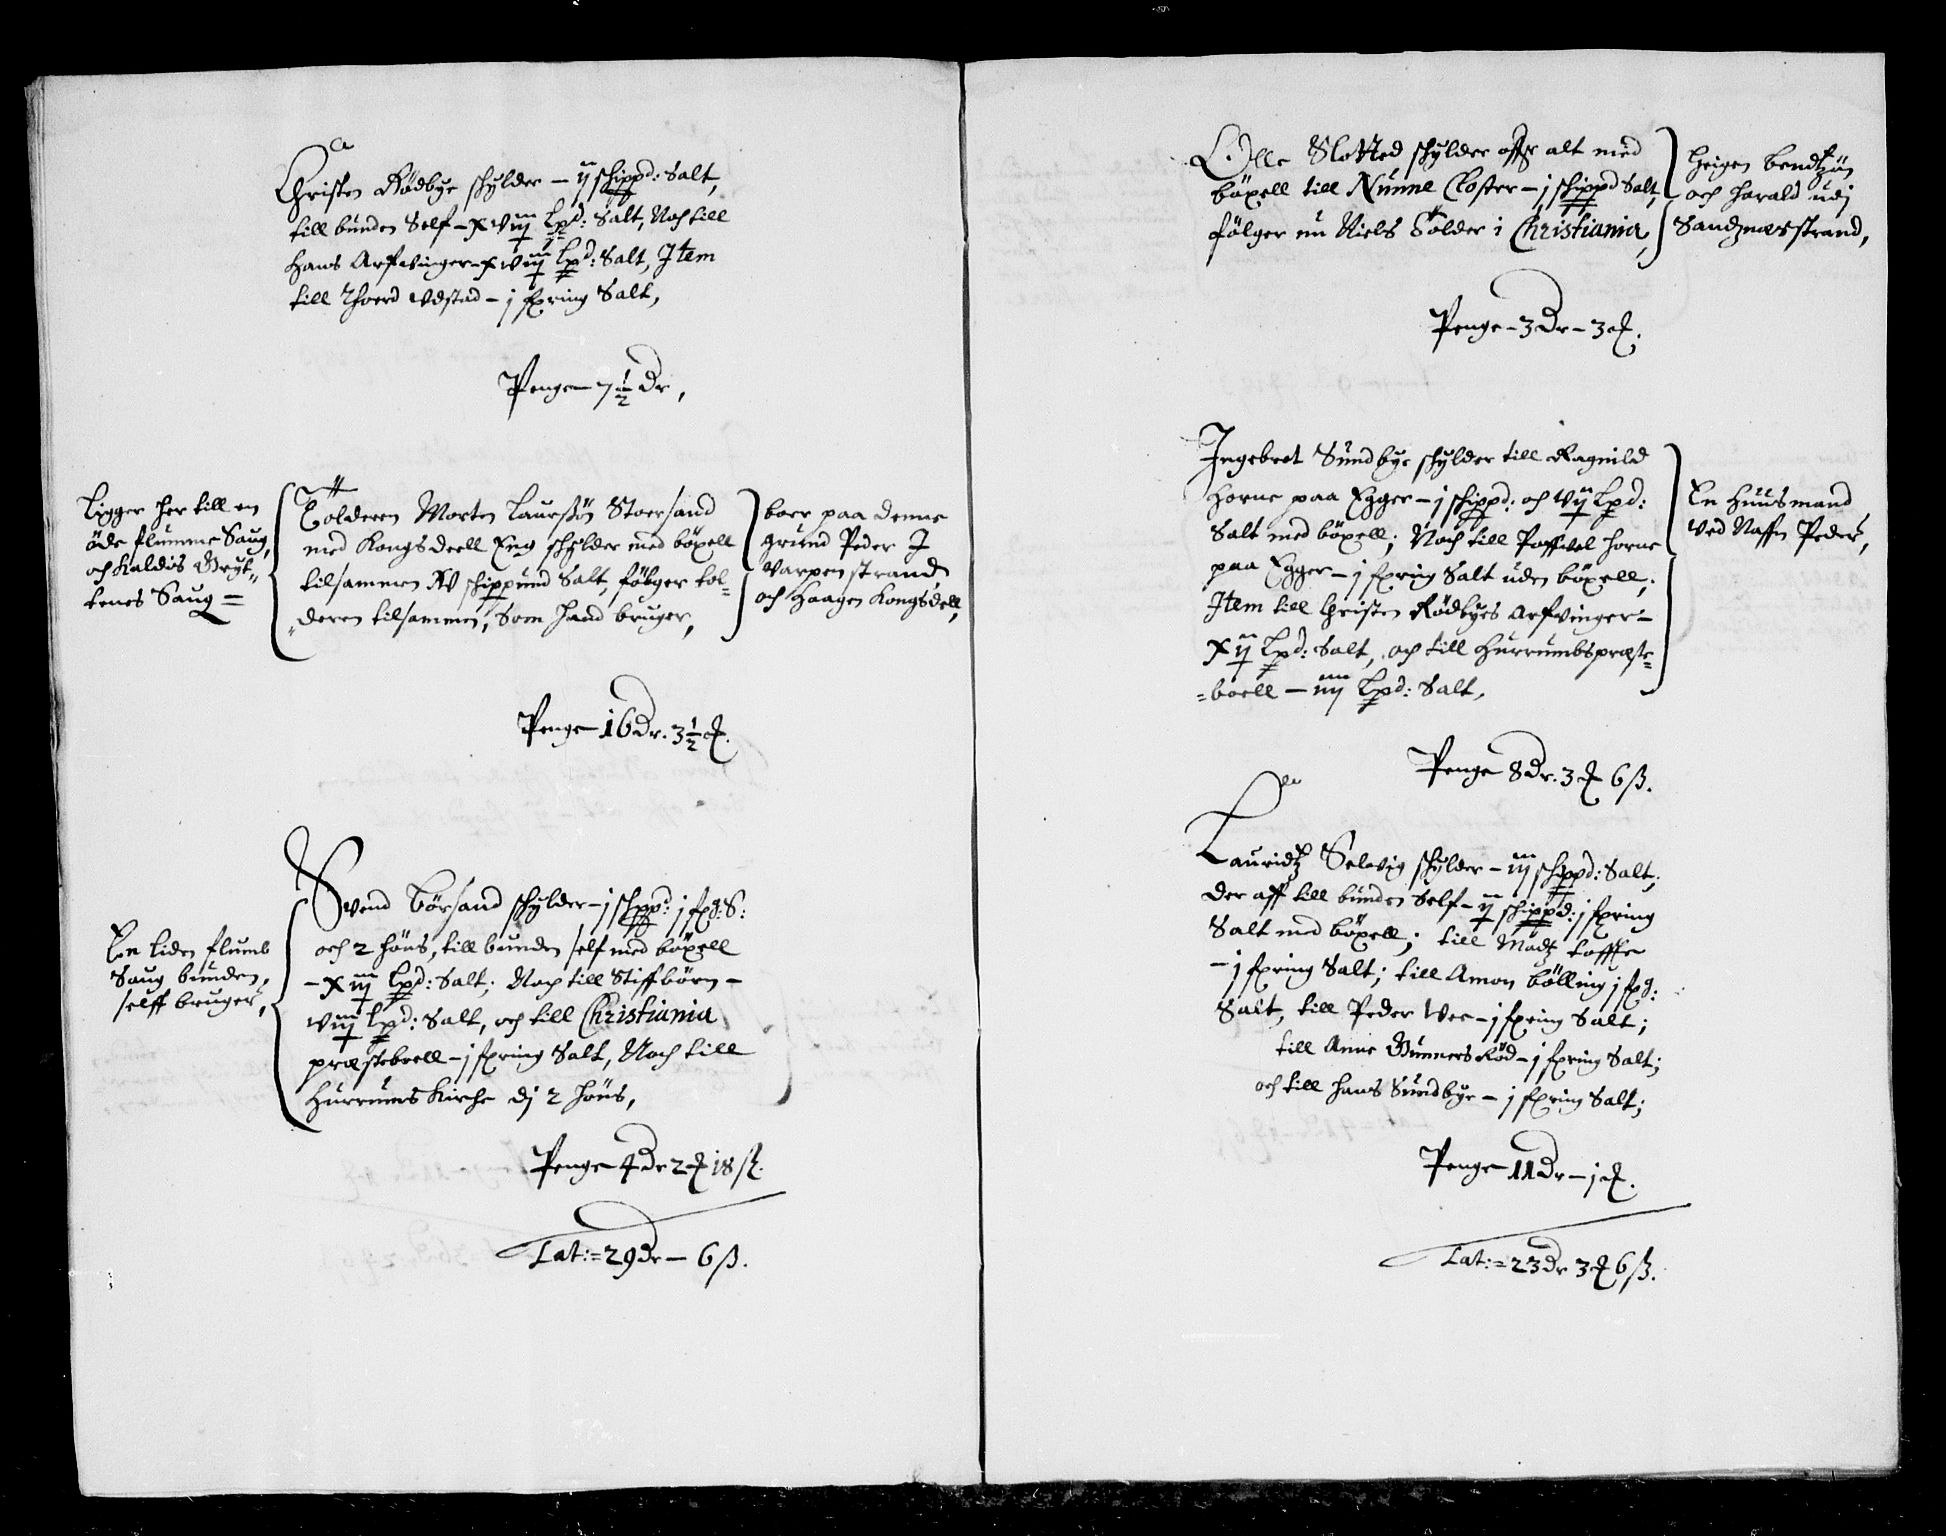 Christen Rödbye schylder – ij schippd: Salt,
till bunden Self – xviij Lpd: Salt, Noch till
Hans Arfvinger – xviij Lpd: Salt, Item
till Thoerd Udstad – j fxring Salt,
Penge – 7 1/2 Dr,
Ligger her till en
öde flumme Saug,
och kaldis Gryt-
tenes Saug =
Tolderen Morten Laursøn Stoersand
med Kongsdeell Eng schylder med böxell
tilsammen XV schippund Salt, fölger tol-
deren tilsammen, Som hand bruger,
boer paa denne
grund Peder I
Varpen strand
och Haagen Kongsdell,
Penge – 16 Dr. 3 1/2 ort.
En liden flumb
Saug bunden,
selff bruger,
Svend Börsand schylder – j schpp: j fxg: S:
och 2 höns, till bunden self med böxell
– xiij Lpd: Salt; Noch till Stiffbörn –
viij Lpd: Salt, och till Christiania
præsteboell – j fxring Salt, Noch till
Hurrums Kirche dj 2 höns,
Penge – 4 Dr 2 ort 18 ß.
Lat: = 29 Dr – 6 ß.
Olle Slotted schylder offr alt med
böxell till Nunne Closter – j schippd Salt,
fölger nu Niels Tolder i Christiania,
Heigen bendtzön
och Harald udj
Sandznæsstrand,
Penge – 3 Dr – 3 ort.
Ingebret Sundbye schylder till Ragnild
Horne paa Egger – j schippd: och vij Lpd:
Salt med böxell; Noch till Poffvel Horne
paa Egger – j fxring Salt uden böxell;
Item till Christen Rödbyes Arfvinger –
xij Lpd: Salt, och till Hurrumbspræste-
boell – iiij Lpd: Salt,
En Huusmand
ved Naffn Peder,
Penge 8 Dr. 3 ort 6 ß.
Lauridtz Selevig schylder – iij schippd: Salt;
Der aff till bunden Self – ij schippd: j fxring
Salt med böxell; till Madz tofffte
– j fxring Salt; till Amon bölling j fxg:
Salt, till Peder Vee – j fxring Salt;
till Anne Gunnersröd – j fxring Salt;
och till Hans Sundbye – j fxring Salt;
Penge – 11 Dr – j ort.
Lat: = 23 Dr 3 ort 6 ß.